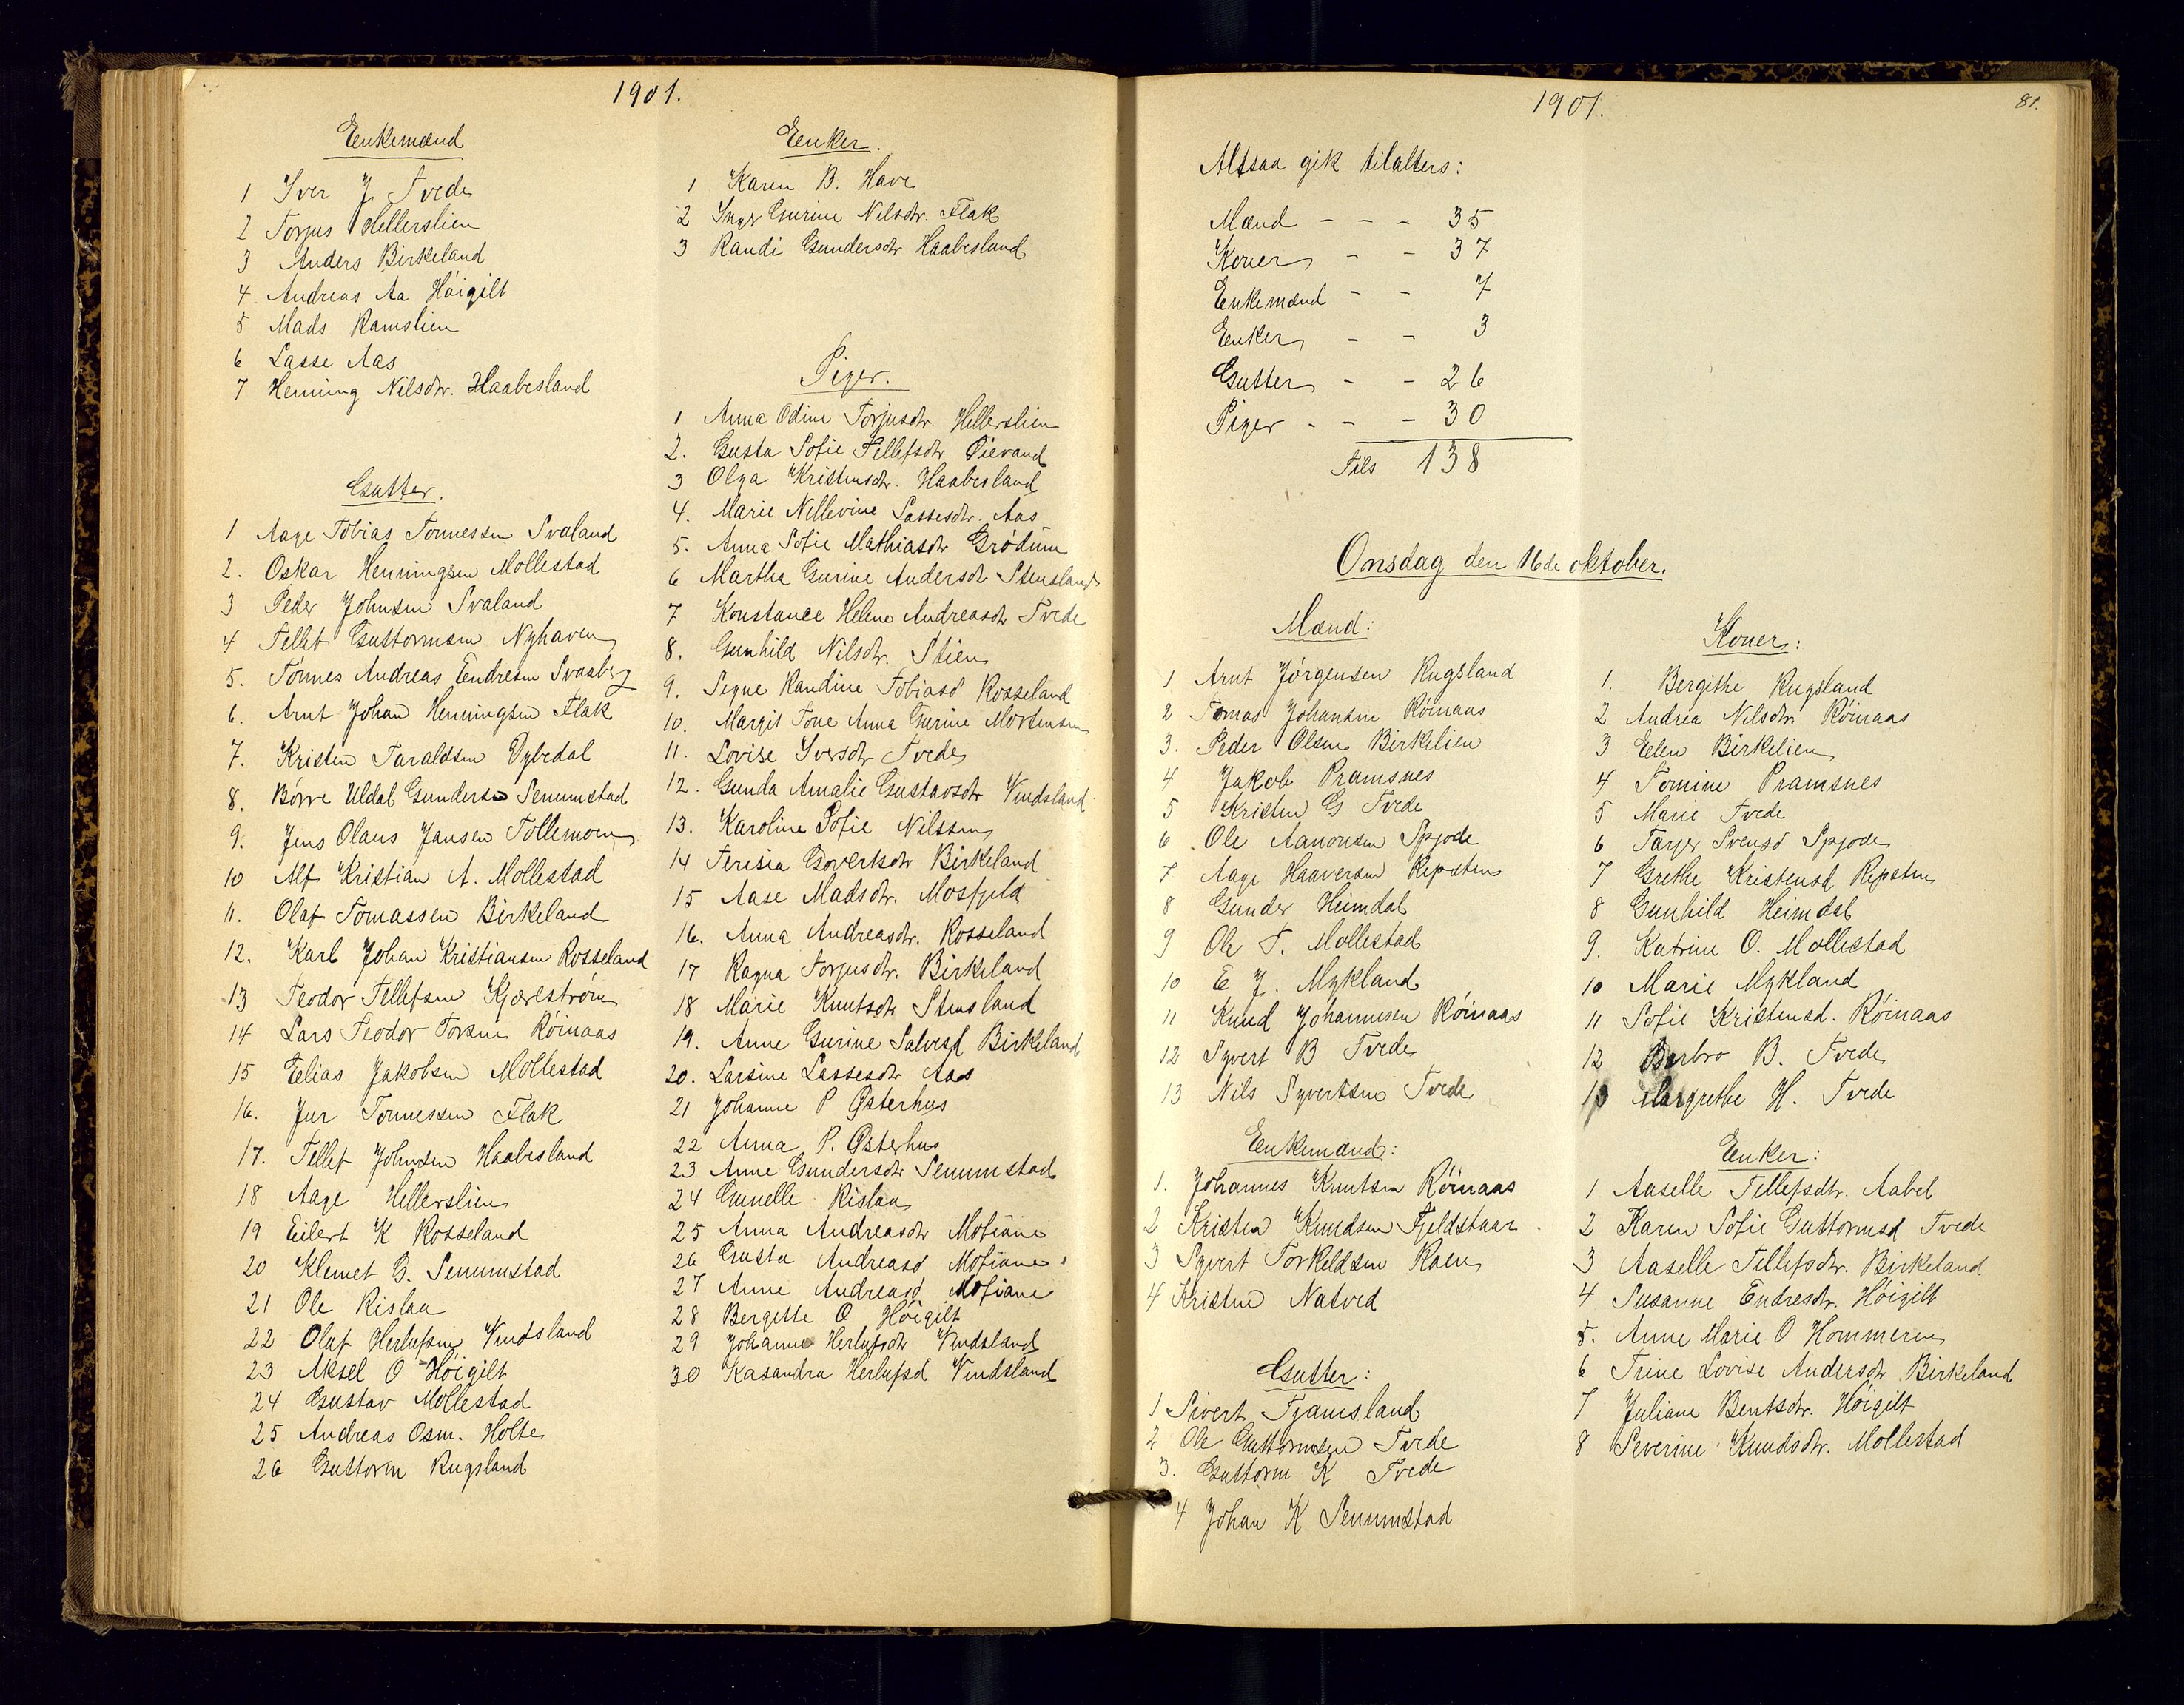 1901.
Enkemænd
1 Iver J. Tvede
2 Torjus Hellerslien
3 Anders Birkeland
4. Andreas Aa Höigilt
5 Mads Ramslien
6 Lasse Aas
7 Henning Nilsdtr. Haabesland
Gutter.
1 Aage Tobias Tonnessen Svaland
2. Oskar Henningsen Mollestad
3 Peder Johnsen Svaland
4 Tellef Guttormsen Nyhaven
5. Tönnes Andreas Endresen Svaberg
6. Arnt Johan Henningsen Flak
7. Kristen Taraldsen Dybedal
8. Börre Uldal Gunderse Senumstad
9. Jens Olaus Jansen Tollemoen
10 Alf Kristian A. Mollestad
11. Olaf Tomassen Birkeland
12. Karl Johan Kristiansen Rosseland
13 Teodor Tellefsen Kjærlström
14 Lars Teodor Torsen Röinaas
15 Elias Jakobsen Mollestad
16. Jur Tonnessen Flak
17. Tellef Johnsen Haabesland
18 Aage Hellerslien
19 Eilert K Rosseland
20 Klemet G. Senumstad
21 Ole Rislaa
22 Olaf Herlufsen Vindsland
23 Aksel O Höigilt
24 Gustav Mollestad
25 Andreas Osm. Holte
26 Guttorm Rugsland
Enker.
1 Karen B. Have
2 Inger Gurine Nilsdtr. Flak
3 Randi Gundersdtr Haabesland
Piger.
1 Anna Odine Torjusdtr. Hellerslien
2. Gusta Sofie Tellefsdtr Öievand
3 Olga Kristensdtr. Haabesland
4. Marie Nellevine Lassesdtr. Aas
5. Anna Sofie Mathiasdtr Grödum
6 Martha Gurine Andersdtr Stensland
7 Konstance Helene Andreasdtr Tvede
8. Gunhild Nilsdtr. Stien
9. Signe Randine Tobiasd Rosseland
10. Margit Tone Anna Gurine Mortensen
11. Lovise Iversdtr Tvede
12. Gunda Amalie Gustavsdtr Vindsland
13. Karoline Sofie Nilssen
14 Teresia Govertsdtr Birkeland
15 Aase Madsdtr. Mosfjeld
16. Anna Andreasdtr. Rosseland
17 Ragna Torjusdtr. Birkeland
18 Marie Knutsdtr Stensland
19. Anne Gurine Salvesd Birkeland
20. Larsine Lassesdtr Aas
21 Johanne P Østerhus
22 Anna P. Østerhus
23 Anne Gundersdtr Senumstad
24 Gunelle Rislaa
25 Anna Andreasdtr Mofiane
26 Gusta Andreasd Mofiane
27 Anne Andreasd Mofiane
28 Bergitte O Höigilt
29 Johanne Herlufsdtr Vindsland
30 Kasandra Herlufsd Vindsland
1901.
81.
Altsaa gik tilalters:
Mænd - - - 35
Koner - - 37
Enkemænd - - 7
Enker - - 3
Gutter - - 26
Piger - - - 30
Tils 138
Onsdag den 16de oktober.
Mænd:
1 Arnt Jörgensen Rugsland
2 Tomas Johansen Röinaas
3. Peder Olsen Birkelien
4 Jakob Pramsnes
5 Kristen G Tvede
6 Ole Aanonsen Spjode
7 Aage Haaversen Repsten
8 Gunder Heimdal
9 Ole T. Mollestad
10 E J. Mykland
11 Knud Johannesen Röinaas
12 Syvert B Tvede
13 Nils Syvertsen Tvede
Enkemænd:
1. Johannes Knutsen Röinaas
2 Kristen Knudsen Fjeldstaar
3 Syvert Torkeldsen Raen
4 Kristen Natved
Gutter:
1 Sivert Tjamsland
2 Ole Guttormsen Tvede
3. Guttorm K Tvede
4 Johan K Senumstad
Koner:
1. Bergithe Rugsland
2 Andrea Nilsdtr Röinaas
3 Elen Birkelien
4 Tomine Pramsnes
5 Marie Tvede
6 Tarjer Svensd Spjode
7 Grethe Kristensd Repsten
8 Gunhild Heimdal
9. Katrine O. Mollestad
10 Marie Mykland
11 Sofie Kristensd. Röinaas
12 Barbro B. Tvede
13 Margrethe H. Tvede
Enker:
1 Aaselle Tellefsdtr. Aabel
2 Karen Sofie Guttormsd Tvede
3 Aaselle Tellefsdtr. Birkeland
4 Susanne Endresdtr. Höigilt
5. Anne Marie O Hommeren
6 Trine Lovise Andersdtr Birkeland
7 Juliane Bentsdtr. Höigilt
8 Severine Knudsdtr. Mollestad